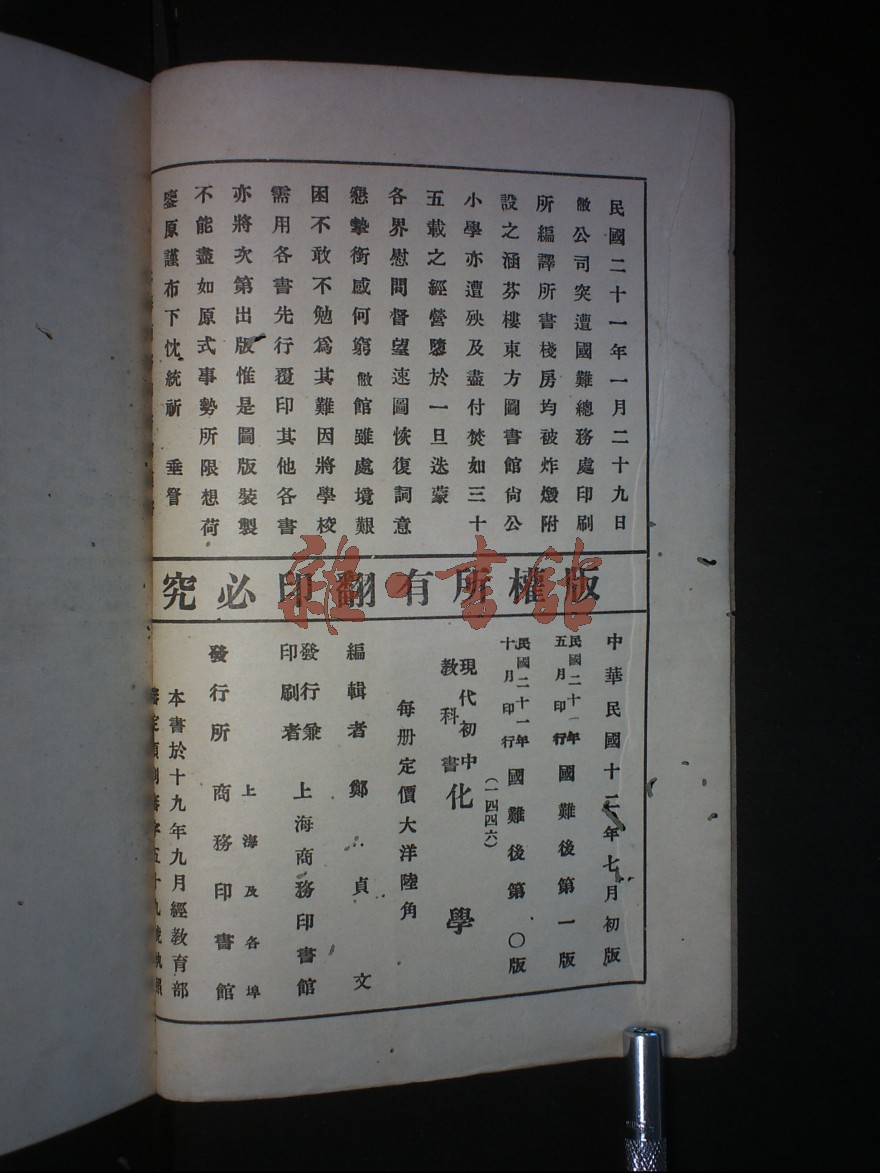 民國二十一年一月二十九日
敝公司突遭國難總務處印刷
所編譯所書棧房均被炸燬附
設之涵芬樓東方圖書館尙公
小學亦遭殃及盡付焚如三十
五載之經營隳於一旦迭蒙
各界慰問督望速圖恢復詞意
懇摯銜感何窮敝館雖處境艱
困不敢不勉爲其難因將學校
需用各書先行覆印其他各書
亦將次第出版惟是圖版裝製
不能盡如原式事勢所限想荷
鑒原謹布下忱統祈 垂詧
版權所有翻印必究
雜·書館
中華民國十二年七月初版
民國二十一年五月印行 國難後第一版
民國二十一年十月印行 國難後第 〇版
(一四四六)
現代初中教科書 化學
每册定價大洋陸角
編輯者 鄭貞文
發行兼印刷者 上海商務印書館
發行所 上海及各埠 商務印書館
本書於十九年九月經教育部
審定領到審字五十九號執照